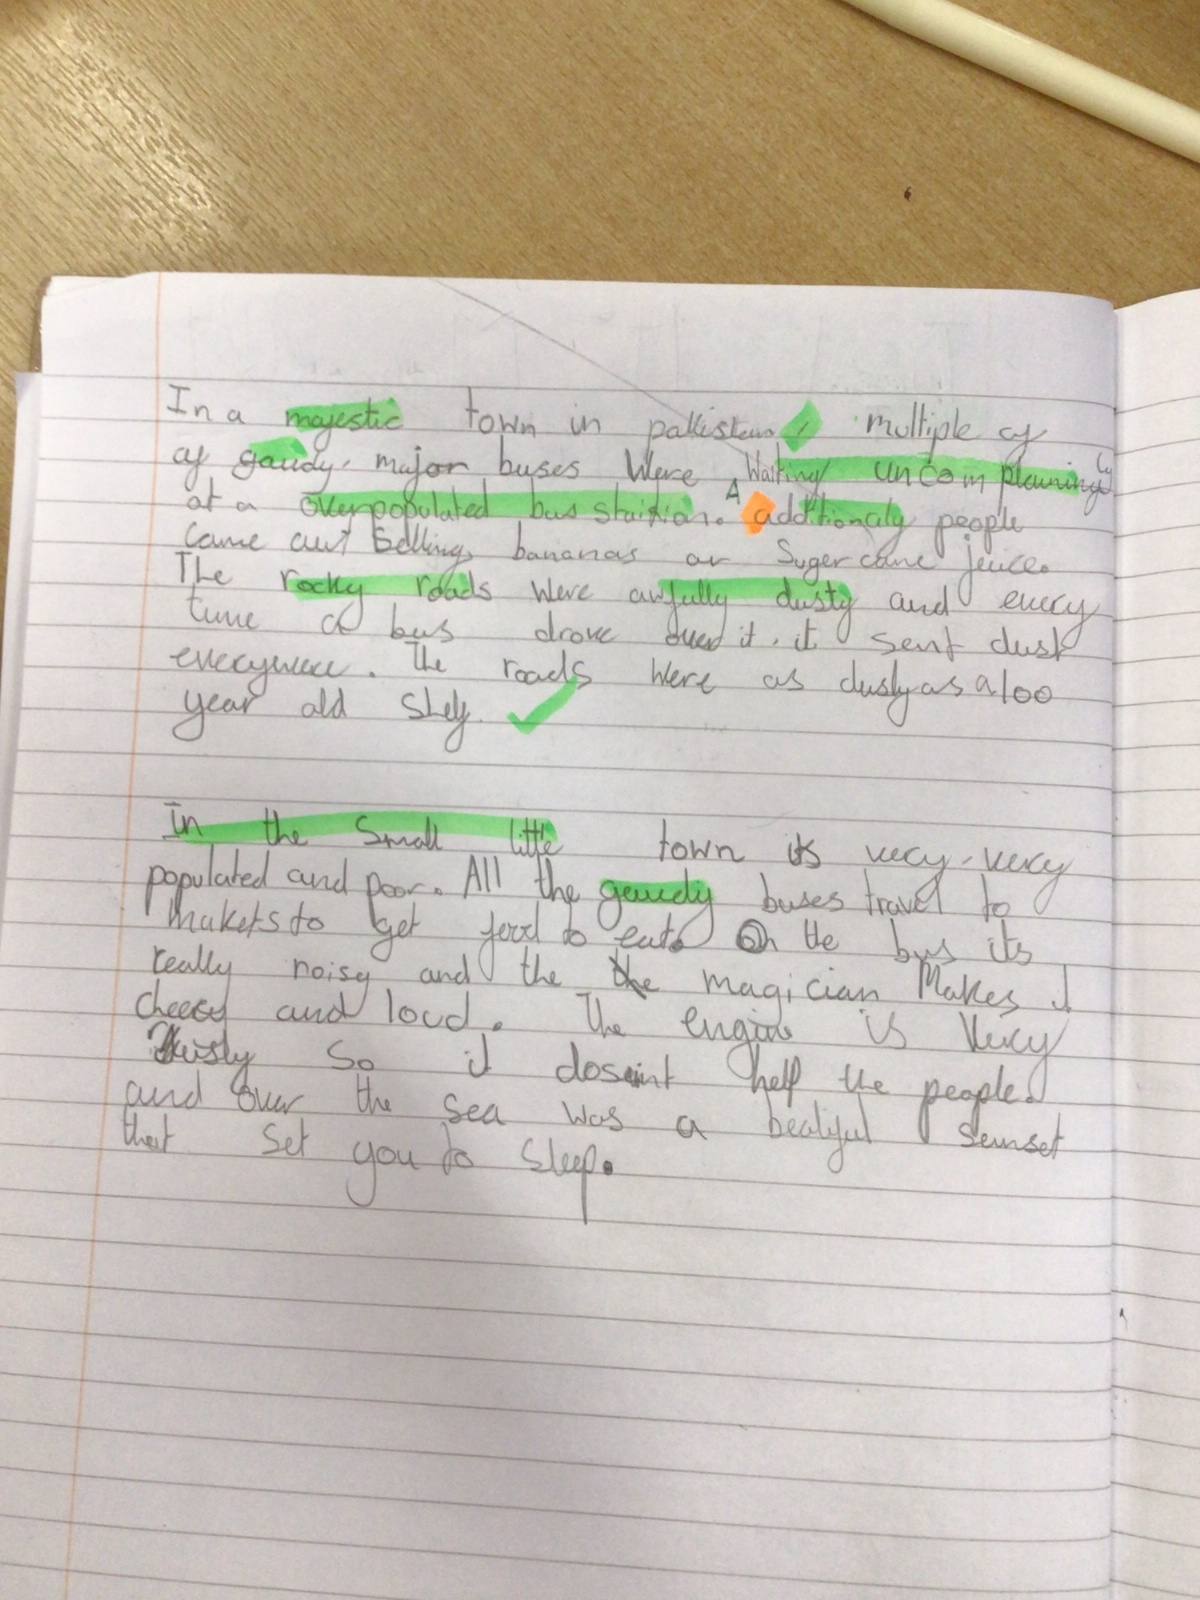 In a majestic town in pakistan, multiple of
of gaudy, major buses were waiting uncomplainingly
at a overpopulated bus staition. A additionaly people
came out Selling bananas or Sugercane jeuice.
The rocky roads were awfully dusty and every
time a bus drove over it, it sent dust
everywere. The roads were as dusty as a 100
year old Shelf.
In the Small little town its very, very
populated and poor. All the gaudy buses travel to
makets to get food to eat. On the bus its
really noisy and the the magician Makes it
cheesy and loud. The engine is Very
so it dosent help the people.
and over the sea was a beatiful sunset
that set you to sleep.